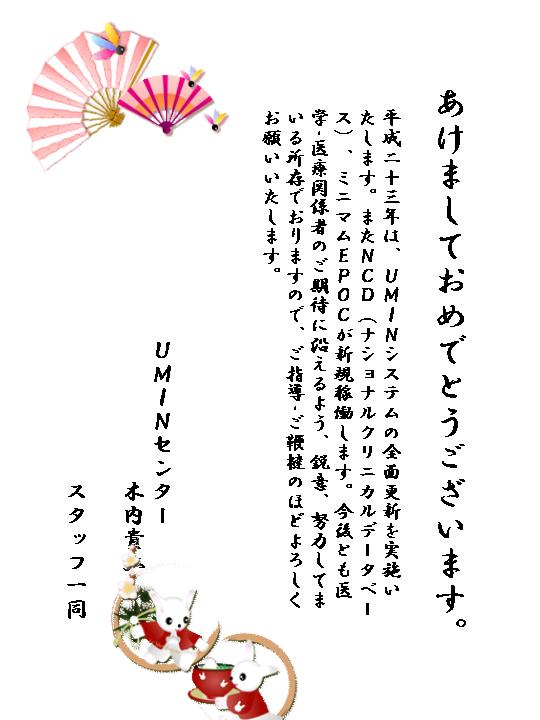 あけましておめでとうございます。
平成二十三年は、UMINシステムの全面更新を実施い
たします。またNCD（ナショナルクリニカルデータベー
ス）、ミニマムEPOCが新規稼働します。今後とも医
学・医療関係者のご期待に沿えるよう、鋭意、努力してま
いる所存でおりますので、ご指導・ご鞭撻のほどよろしく
お願いいたします。
UMINセンター
木内貴
スタッフ一同